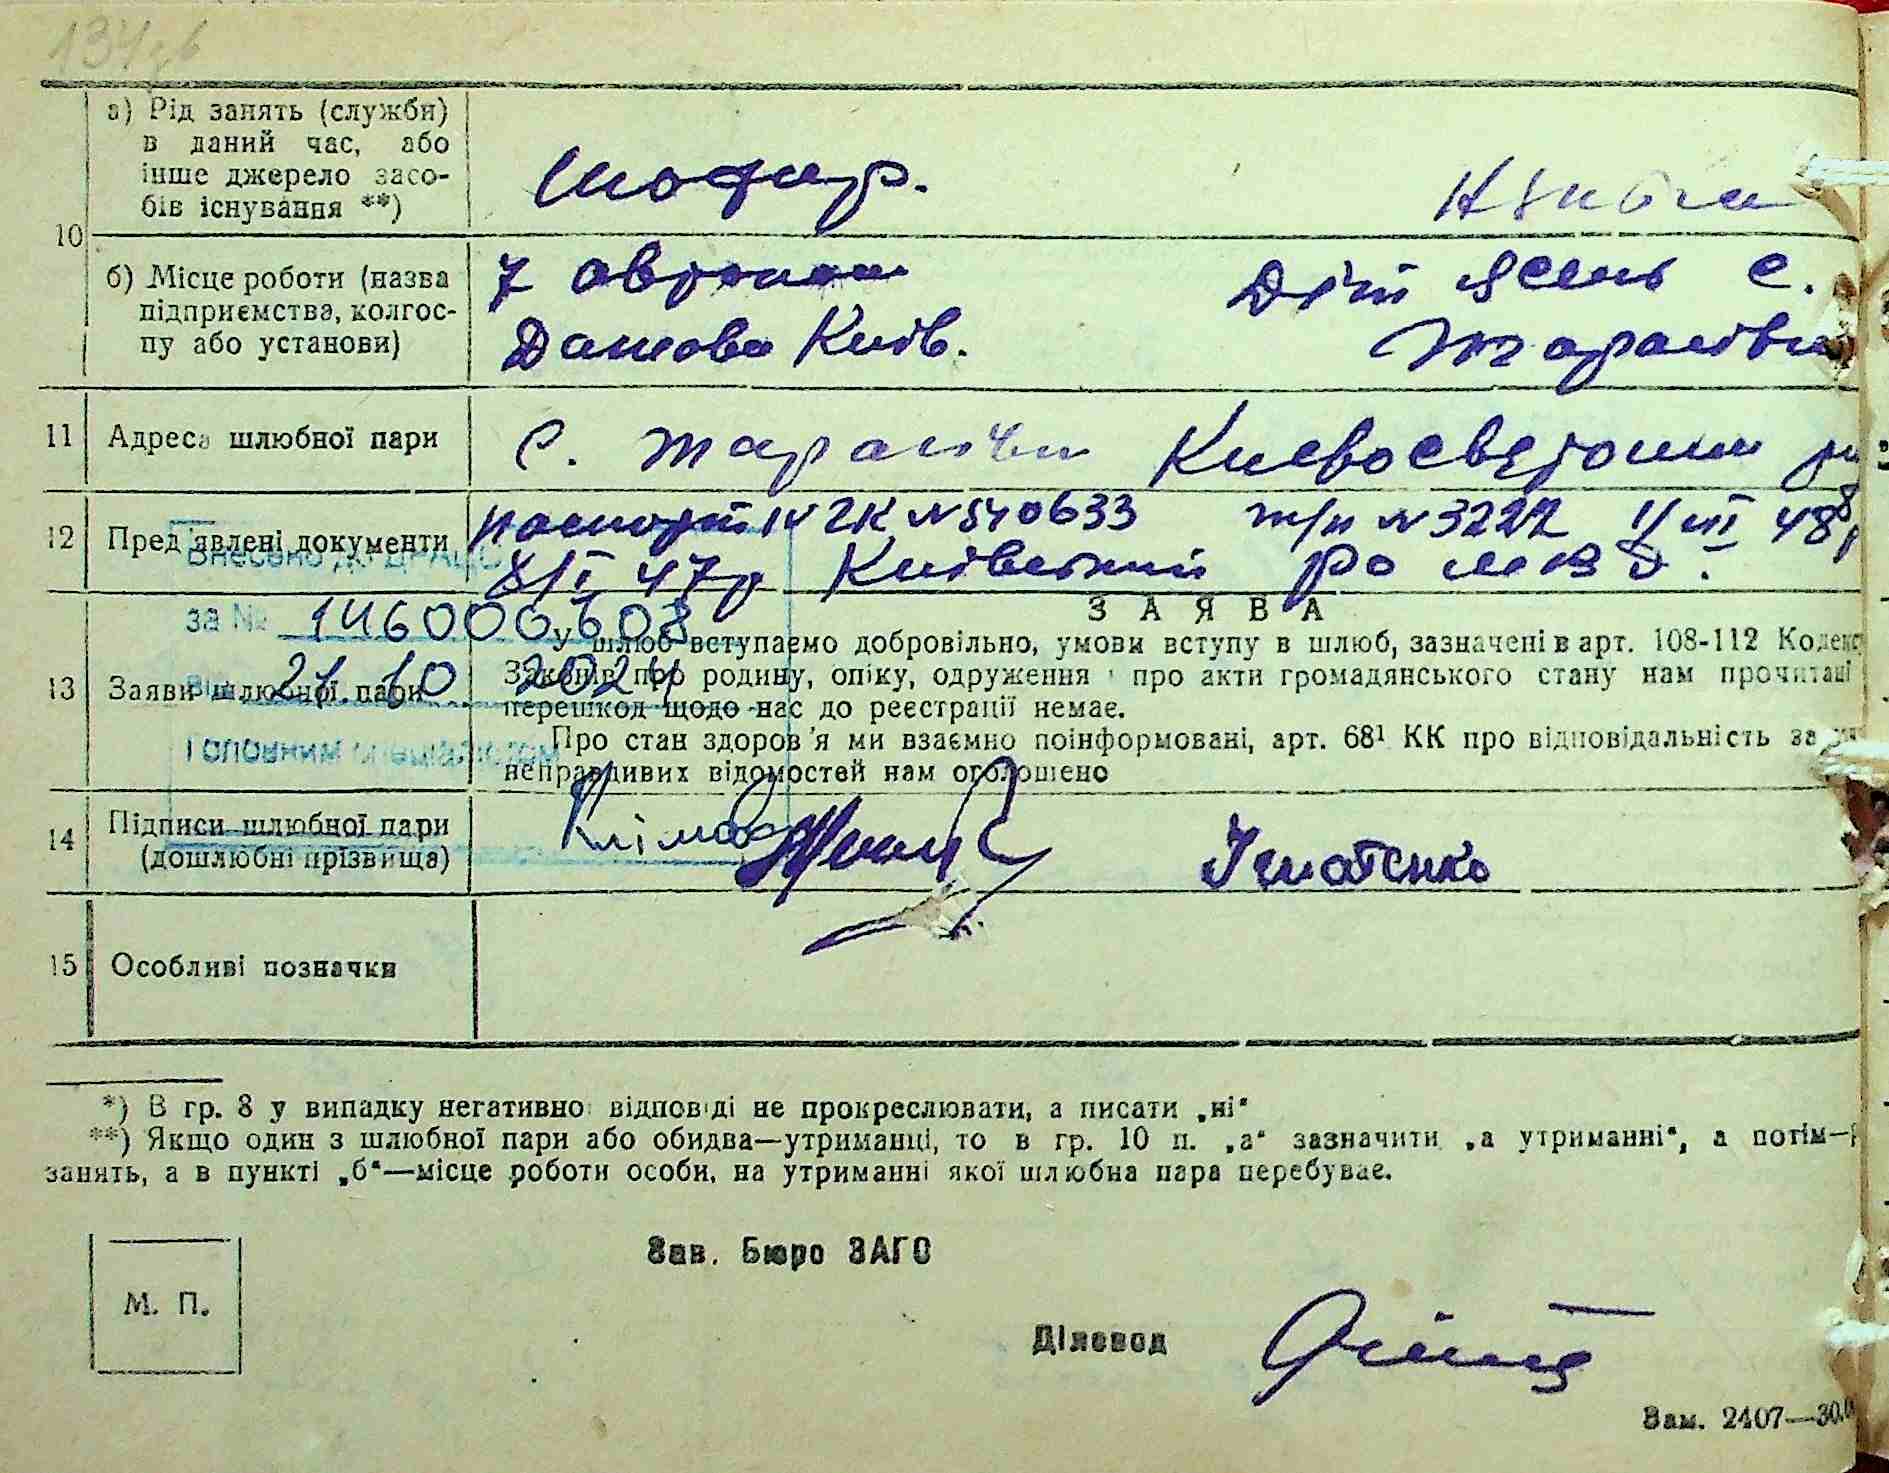 134
а) Рід занять (служби)
в даний час, або
інше джерело засо-
бів існування **)
Шофер.
10
б) Місце роботи (назва
підприємства, колгос-
пу або установи)
7
Київ.
Ясень с.
11 Адреса шлюбної пари
с. Тарасівка Києвосвятошин
12 Пред'явлені документи
паспорт IV ГК № 540633 т/п № 3222 1/VII 48
8/I 47р Київський РО МВД.
Внесено до ДРАЦС
за № 146000603
21.10 2024
Головним спеціалістом
13 Заяви шлюбної пари
ЗАЯВА
У шлюб вступаємо добровільно, умови вступу в шлюб, зазначені в арт. 108-112 Кодекс
Законів про родину, опіку, одруження і про акти громадянського стану нам прочитані
перешкод щодо нас до реєстрації немає.
Про стан здоров'я ми взаємно поінформовані, арт. 68¹ КК про відповідальність за
неправдивих відомостей нам оголошено
14 Підписи шлюбної пари
(дошлюбні прізвища)
Ігнатенко
15 Особливі позначки
*) В гр. 8 у випадку негативної відповіді не прокреслювати, а писати „ні“
**) Якщо один з шлюбної пари або обидва—утриманці, то в гр. 10 п. „а“ зазначити „а утриманні“, а потім—
занять, а в пункті „б“—місце роботи особи, на утриманні якої шлюбна пара перебуває.
М. П.
Зав. Бюро ЗАГС
Діловод
Зам. 2407—30.